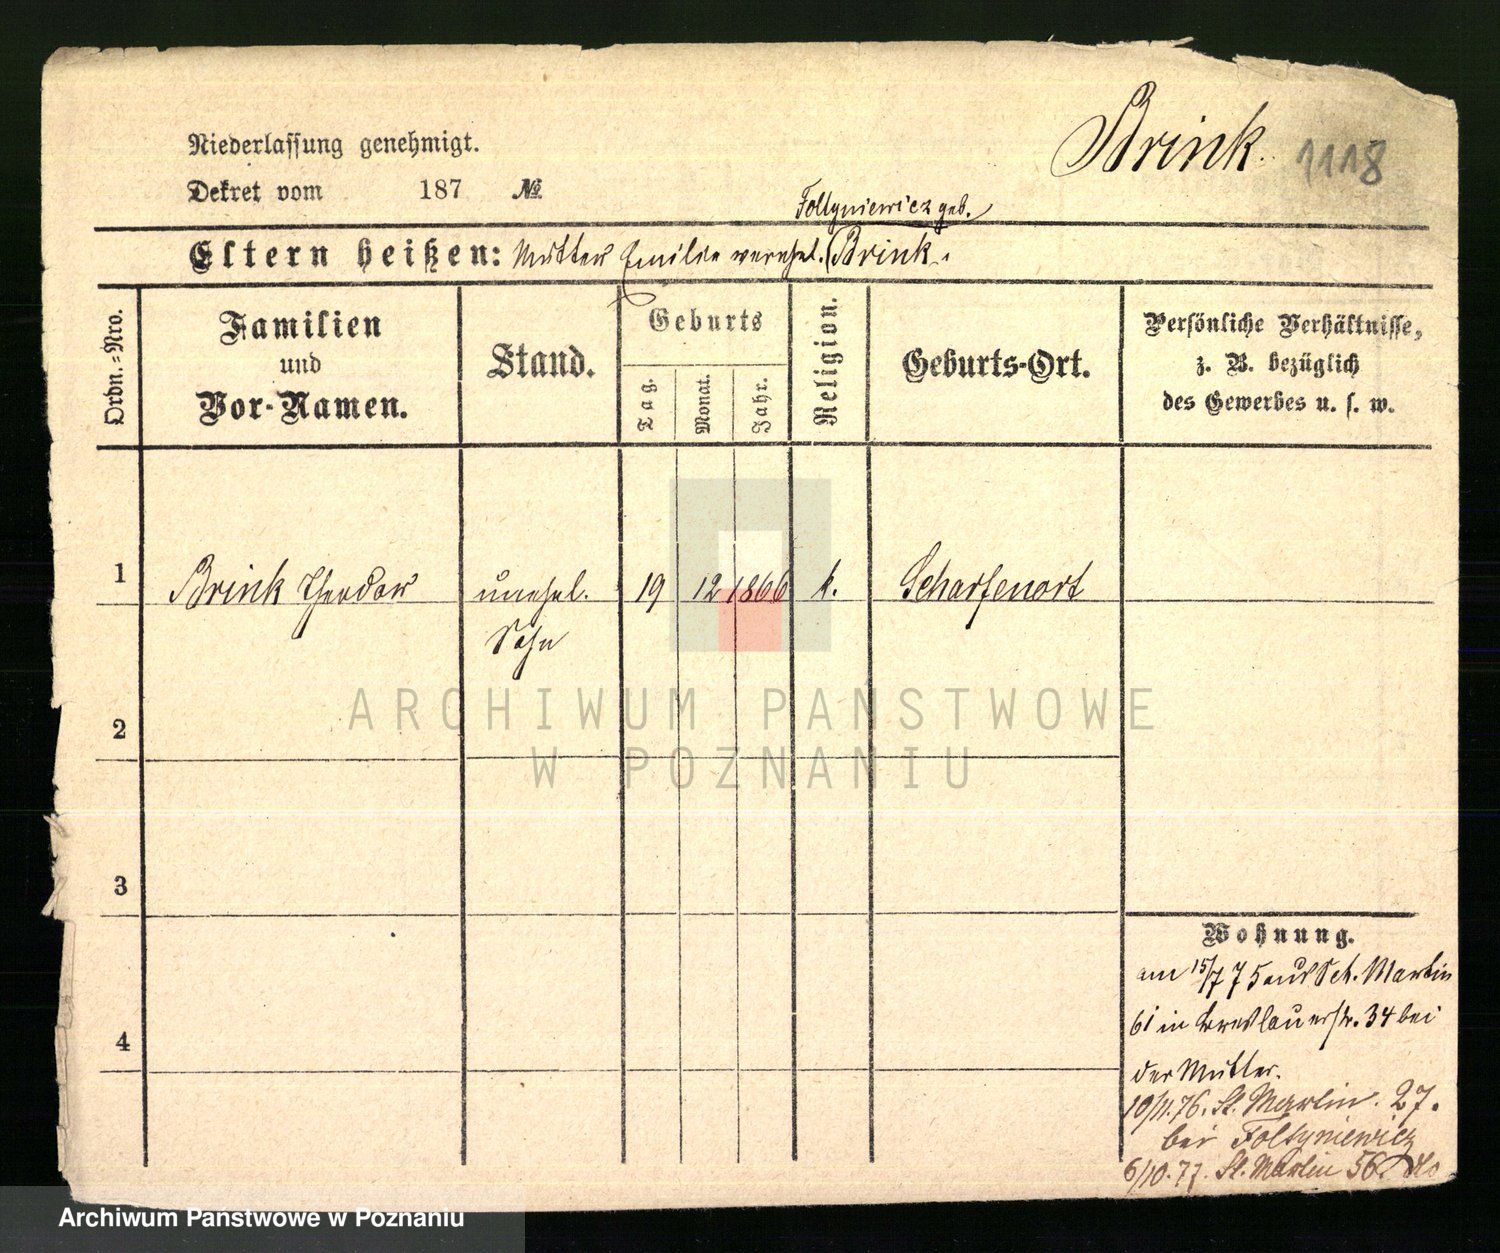 Brink. 1118
Niederlassung genehmigt.
Dekret vom 187 №
Foltyniewicz geb.
Eltern heißen: Mutter Emilie verehel. (Brink.
Ordn.=Nro.
Familien
und
Vor-Namen.
Stand.
Geburts
Tag.
Monat.
Jahr.
Religion.
Geburts-Ort.
Persönliche Verhältnisse,
z. B. bezüglich
des Gewerbes u. s. w.
1 Brink Theodor unehel. 19 12 1866 k. Scharfenort
Sohn
2
3
4
Wohnung.
am 15/7 75 aus Sct. Martin
61 in Breslauerstr. 34 bei
der Mutter.
10/11.76. St. Martin. 27.
bei Foltyniewicz
6/10.77. St. Martin 56
ARCHIWUM PAŃSTWOWE
W POZNANIU
Archiwum Państwowe w Poznaniu